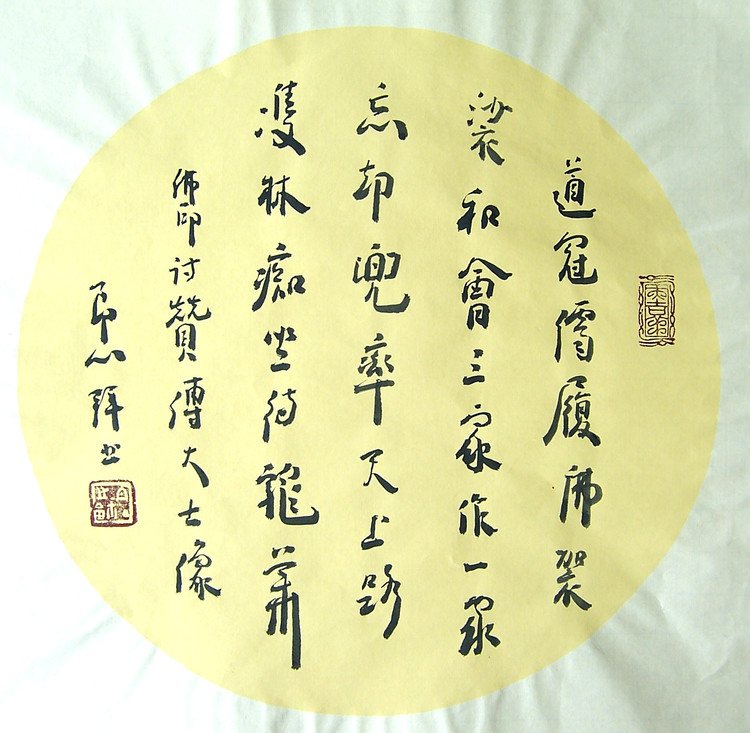 道冠儒履佛袈
裟和會三家作一家
忘却兜率天上路
雙林痴坐待龍華
佛印讨贊傅大士像
心拜书